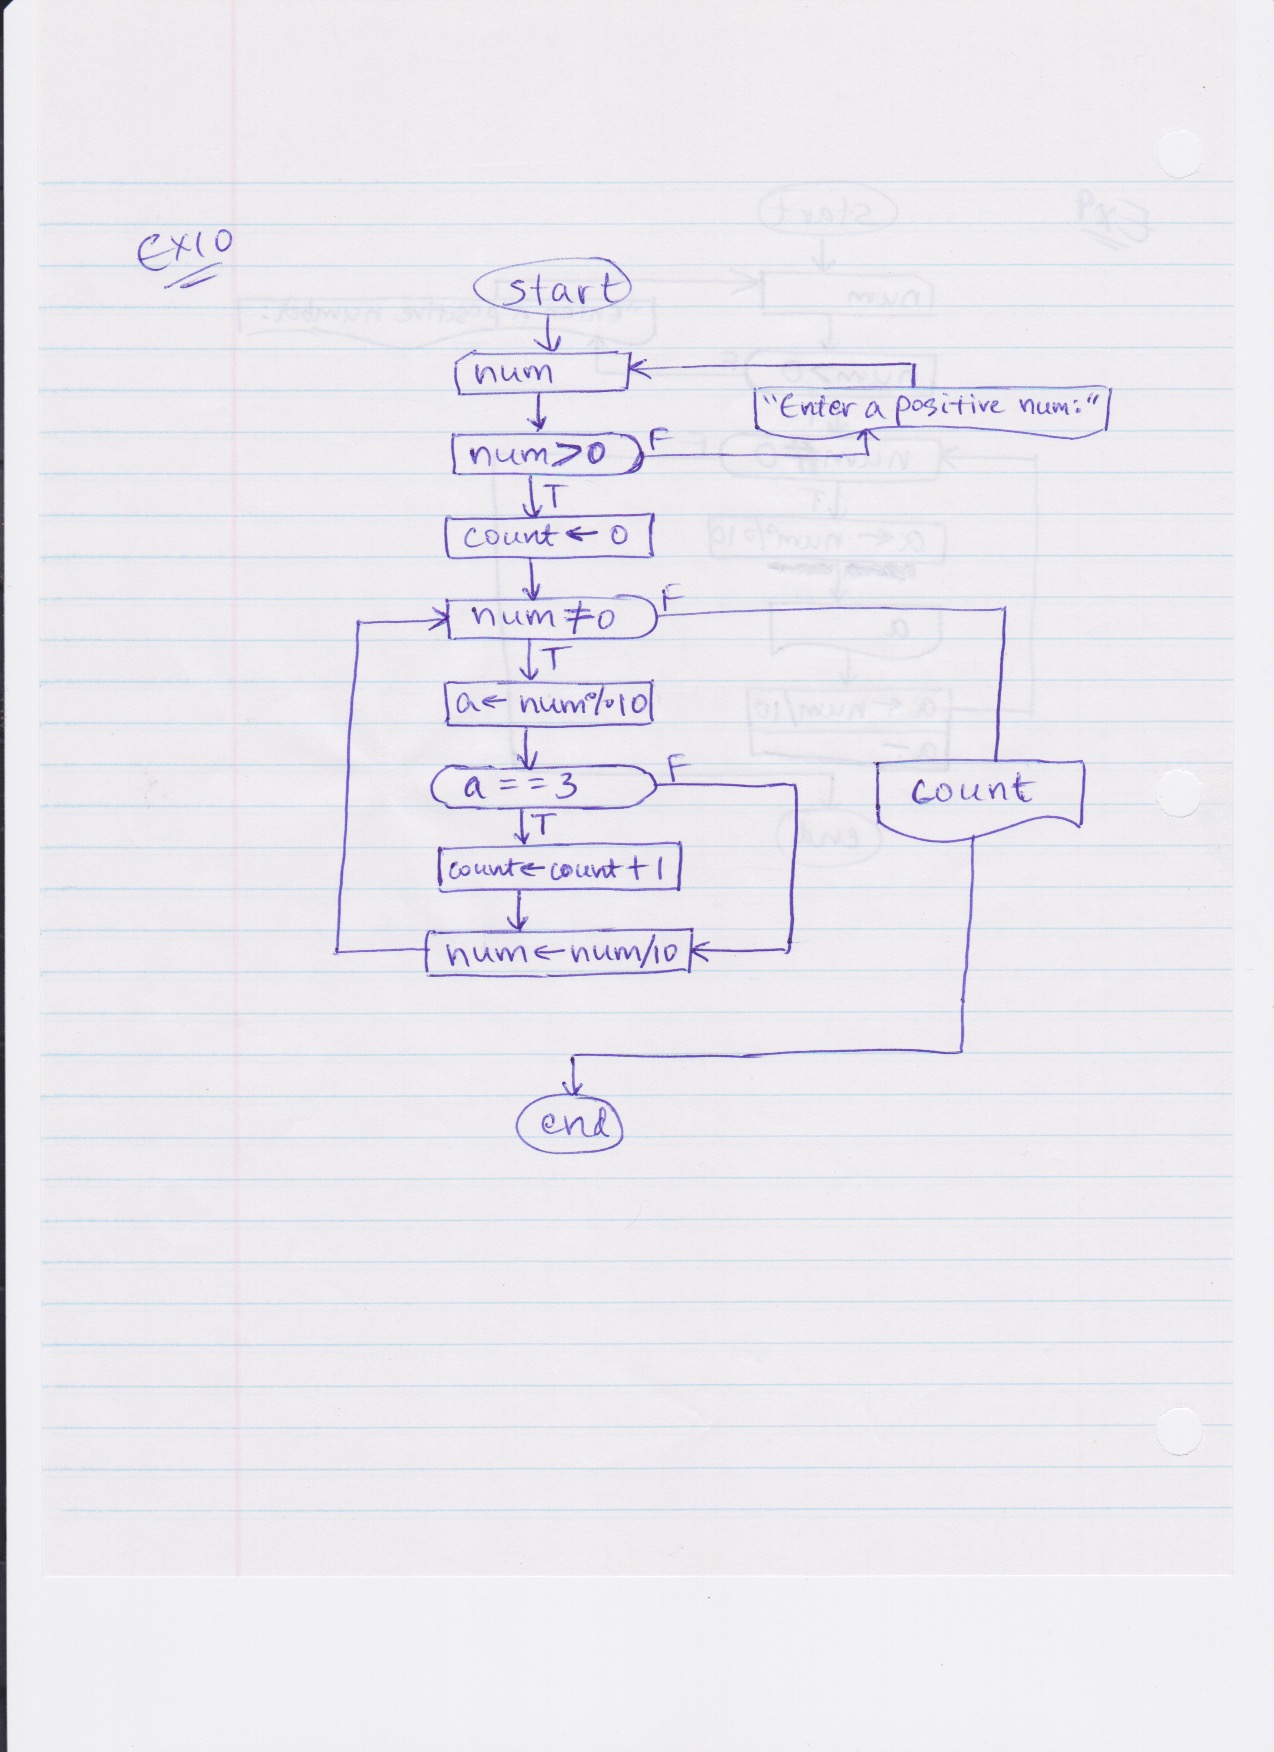 Ex10
start
num
"Enter a positive num:"
num>0
F
T
count ← 0
num≠0
F
T
a← num%10
a==3
F
T
count
count←count+1
num←num/10
end